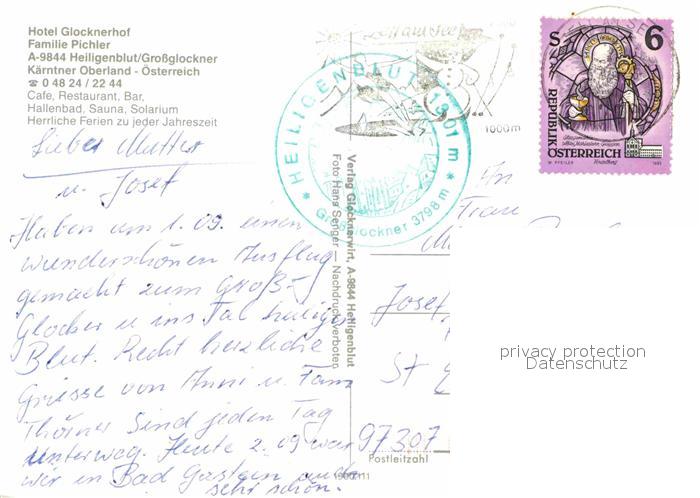 Hotel Glocknerhof
Familie Pichler
A-9844 Heiligenblut/Großglockner
Kärntner Oberland - Österreich
☎ 0 48 24 / 22 44
Cafe, Restaurant, Bar,
Hallenbad, Sauna, Solarium
Herrliche Ferien zu jeder Jahreszeit
Lieber Mutter
u. Josef
Haben am 1.09. einen
wunderschönen Ausflug
gemacht zum Groß-
Glocker u ins Tal heilig
Blut. Recht herzliche
Grüsse von Anni u. Fam
Thörner Sind jeden Tag
Unterweg. Heute 2.09 war
wir in Bad Gastein auch
sehr schön.
HEILIGENBLUT 1301 m
Großglockner 3798 m
1000m
Verlag Glocknerwirt, A-9844 Heiligenblut
Foto Hans Senger — Nachdruck verboten
S 6
REPUBLIK
ÖSTERREICH
An
Frau
Josef
St
97307
Postleitzahl
privacy protection
Datenschutz